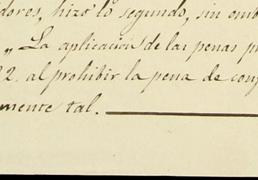 dores, hizo lo segundo, sin emb
„ La aplicacion de las penas p
22. al prohibir la pena de con
mente tal.